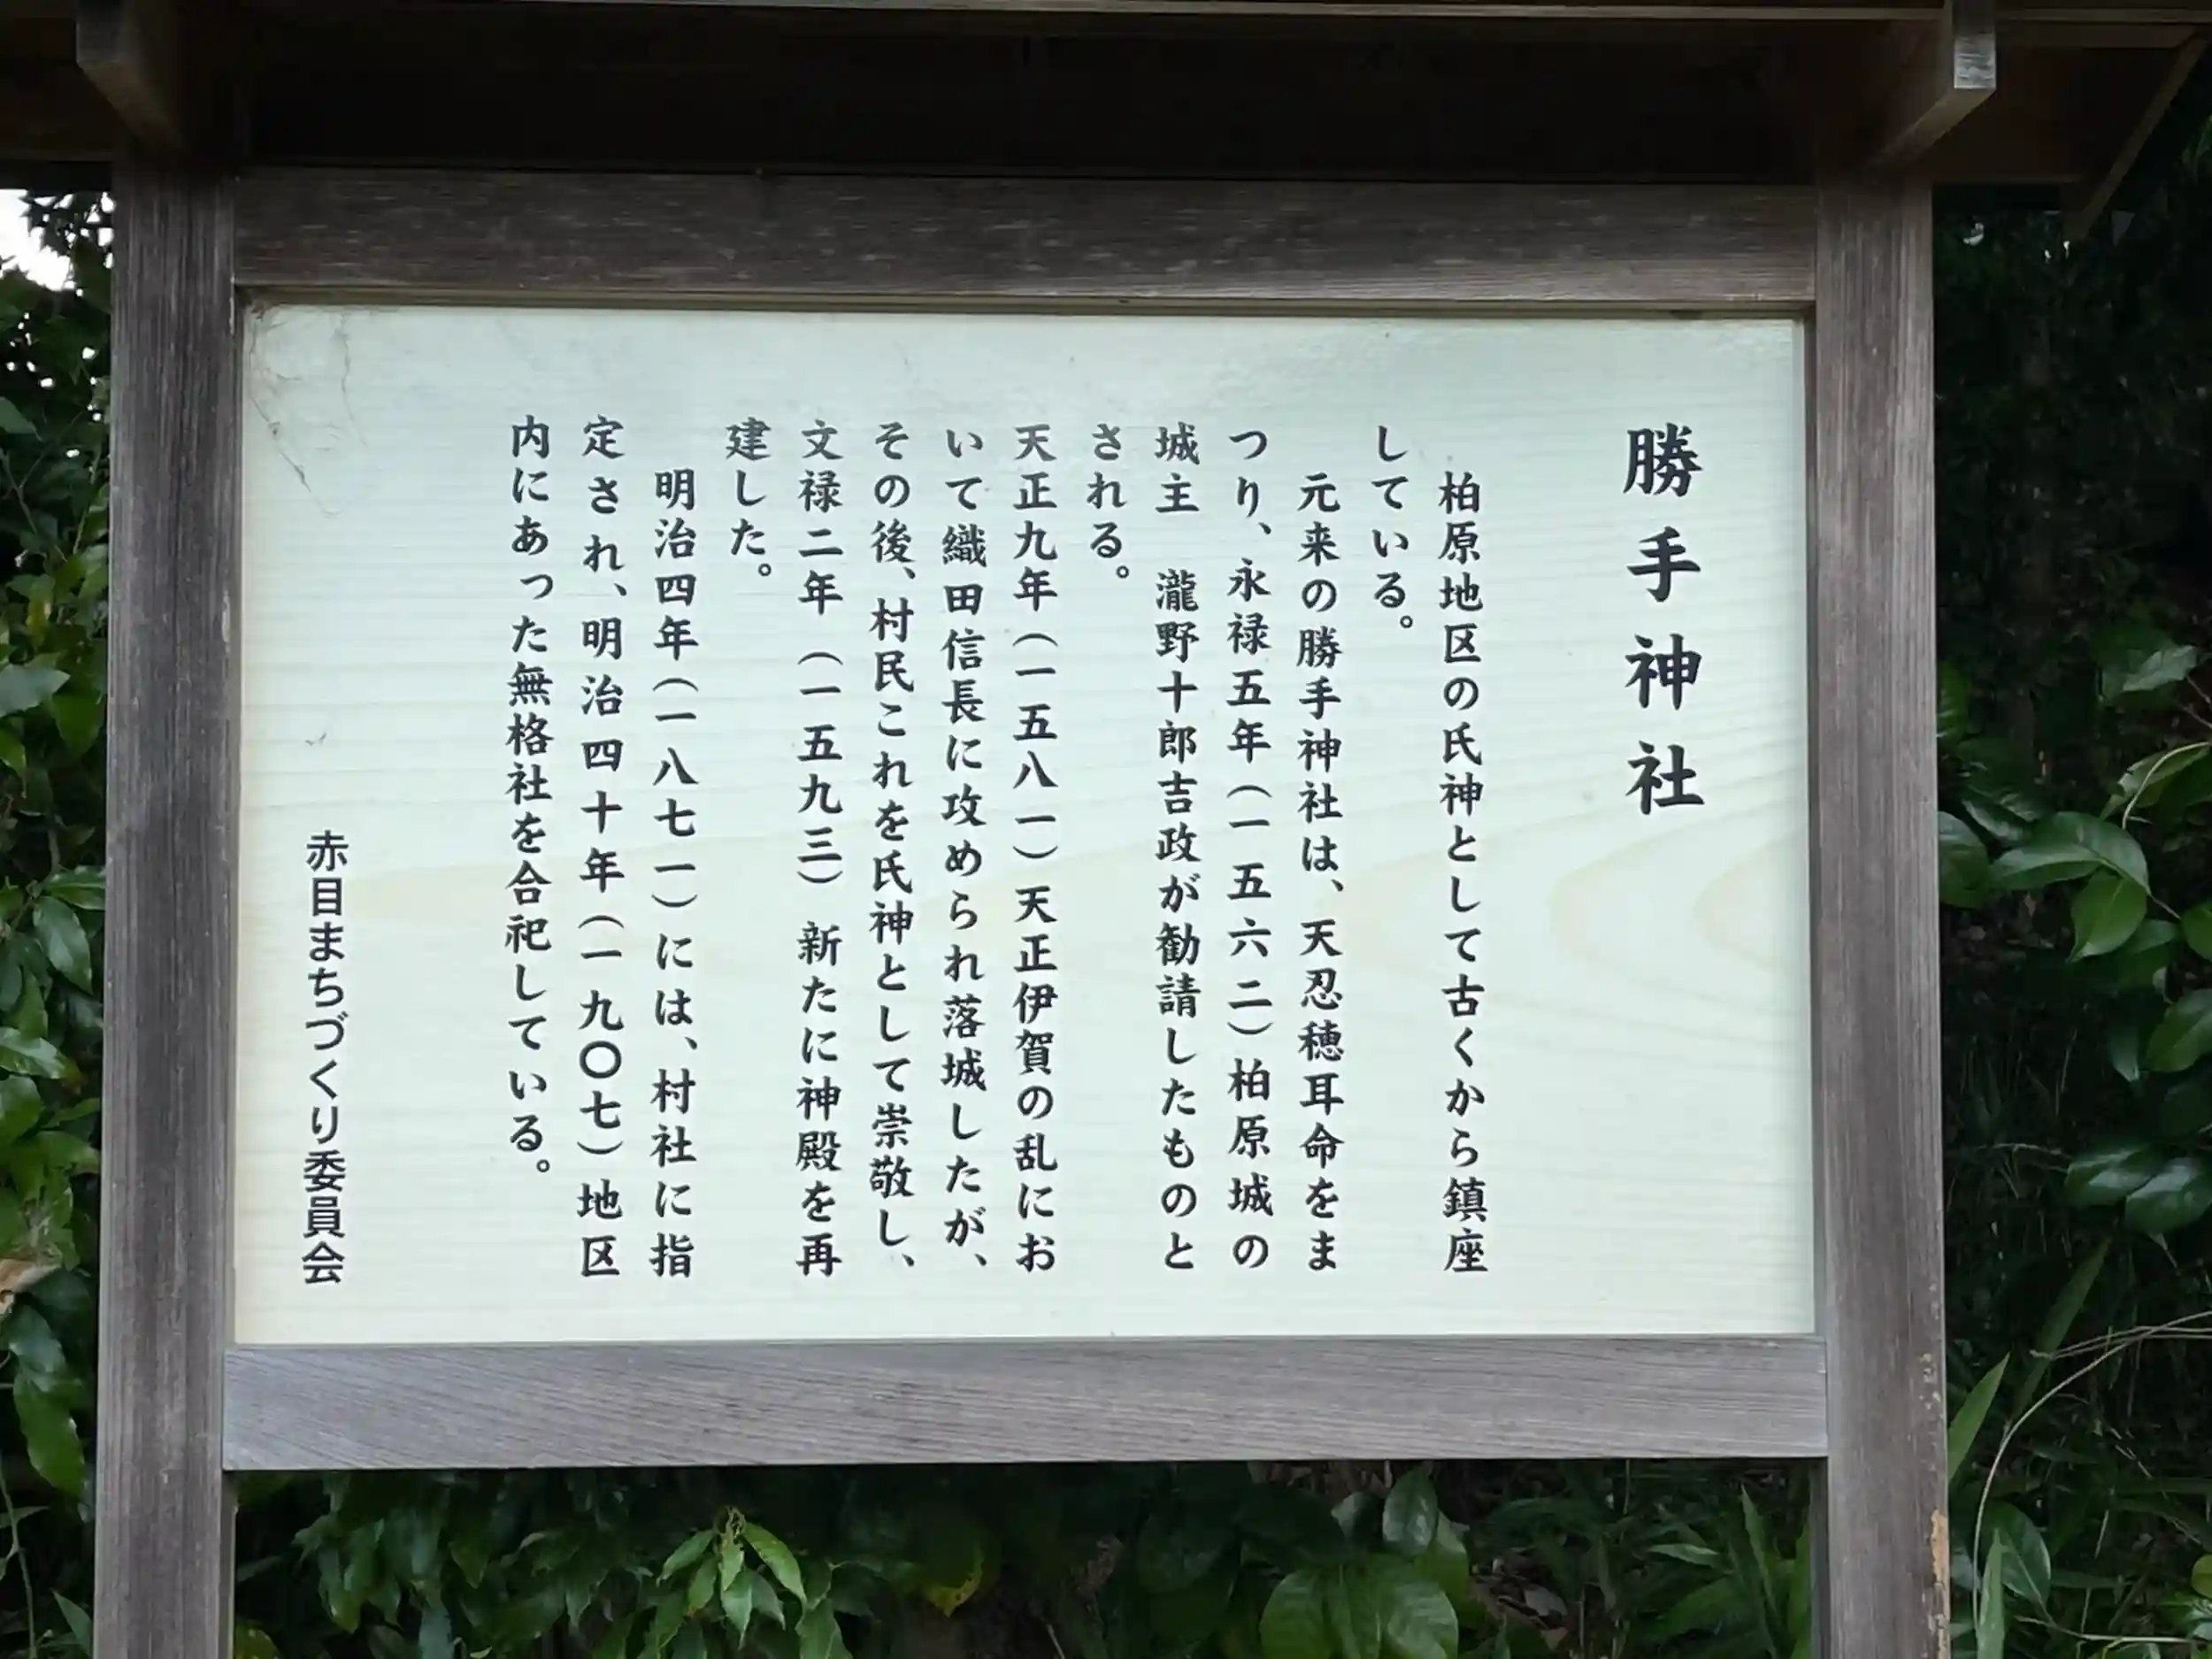 勝手神社
柏原地区の氏神として古くから鎮座
している。
元来の勝手神社は、天忍穂耳命をま
つり、永禄五年（一五六二）柏原城の
城主　瀧野十郎吉政が勧請したものと
される。
天正九年（一五八一）天正伊賀の乱にお
いて織田信長に攻められ落城したが、
その後、村民これを氏神として崇敬し、
文禄二年（一五九三）新たに神殿を再
建した。
明治四年（一八七一）には、村社に指
定され、明治四十年（一九〇七）地区
内にあった無格社を合祀している。
赤目まちづくり委員会